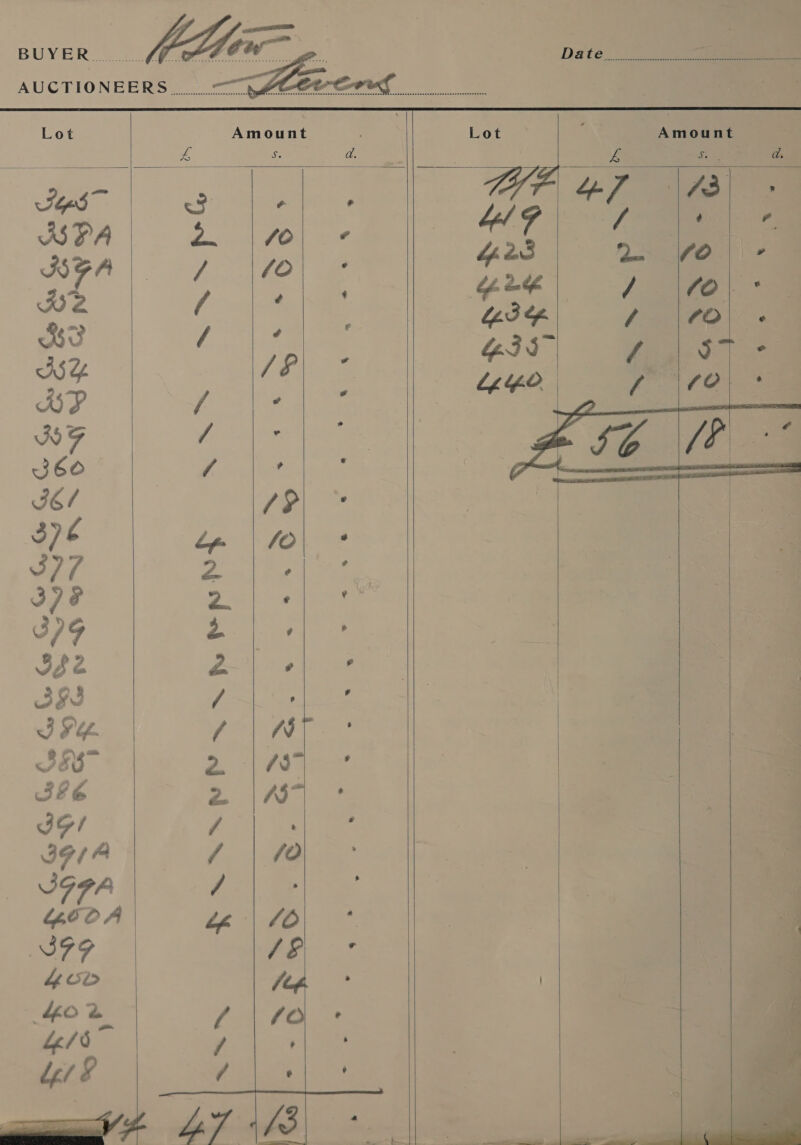 BUYER
Date
AUCTIONEERS
Lot Amount
£ s. d.
345 3 - -
358A 2 10 -
359A 1 10 -
352 1 - -
353 1 - -
354 18 -
358 1 - -
359 1 - -
360 1 - -
361 18 -
376 4 10 -
377 2 - -
378 2 - -
379 2 - -
382 2 - -
383 1 - -
384 1 15 -
385 2 15 -
386 2 15 -
391 1 - -
391A 1 10 -
399A 1 - -
400A 4 10 -
399 18 -
400 14 -
402 1 10 -
415 1 - -
418 1 - -
47 13 -
Lot Amount
£ s. d.
B/F 47 13 -
419 1 - -
423 2 10 -
424 1 10 -
434 1 10 -
435 1 5 -
440 1 10 -
£ 56 18 -